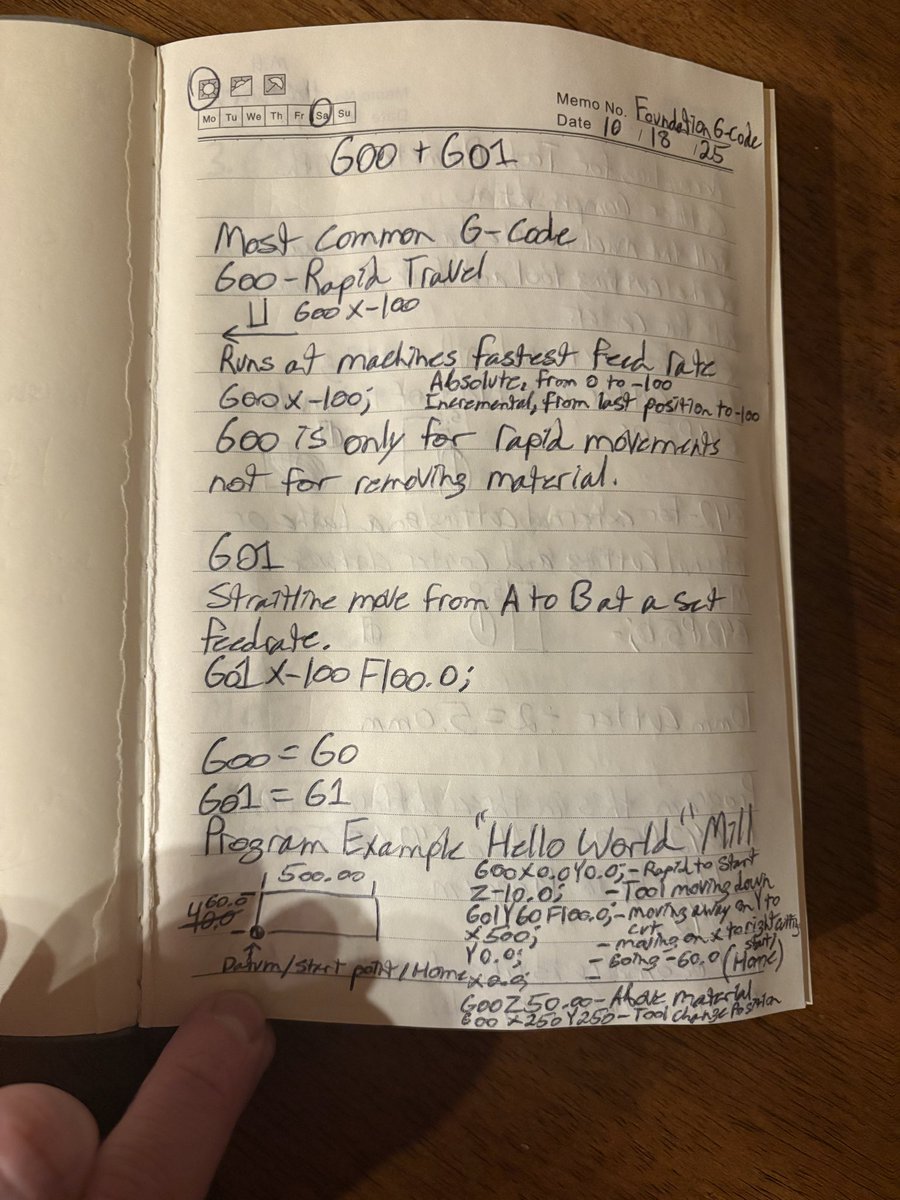 Mo Tu We Th Fr Sa Su
Memo No. Foundation G-Code
Date 10 / 18 / 25
G00 + G01
Most Common G-Code
G00 - Rapid Travel
G00 X-100
Runs at machines fastest feed rate
Absolute, from 0 to -100
G00 X-100;
Incremental, from last position to -100
G00 is only for rapid movements
not for removing material.
G01
Straitline move from A to B at a set
feedrate.
G01 X-100 F100.0;
G00 = G0
G01 = G1
Program Example "Hello World" Mill
500.00
Y 60.0
Datum/Start point/Home
G00 X0.0 Y0.0; - Rapid to Start
Z-10.0; - Tool moving down
G01 Y60 F100.0; - moving away on Y to
cut
X500; - moving on X to right cutting
Y0.0; - Going -60.0
X0.0; - start/
(Home)
G00 Z50.00 - Above material
G00 X250 Y250 - Tool change Position